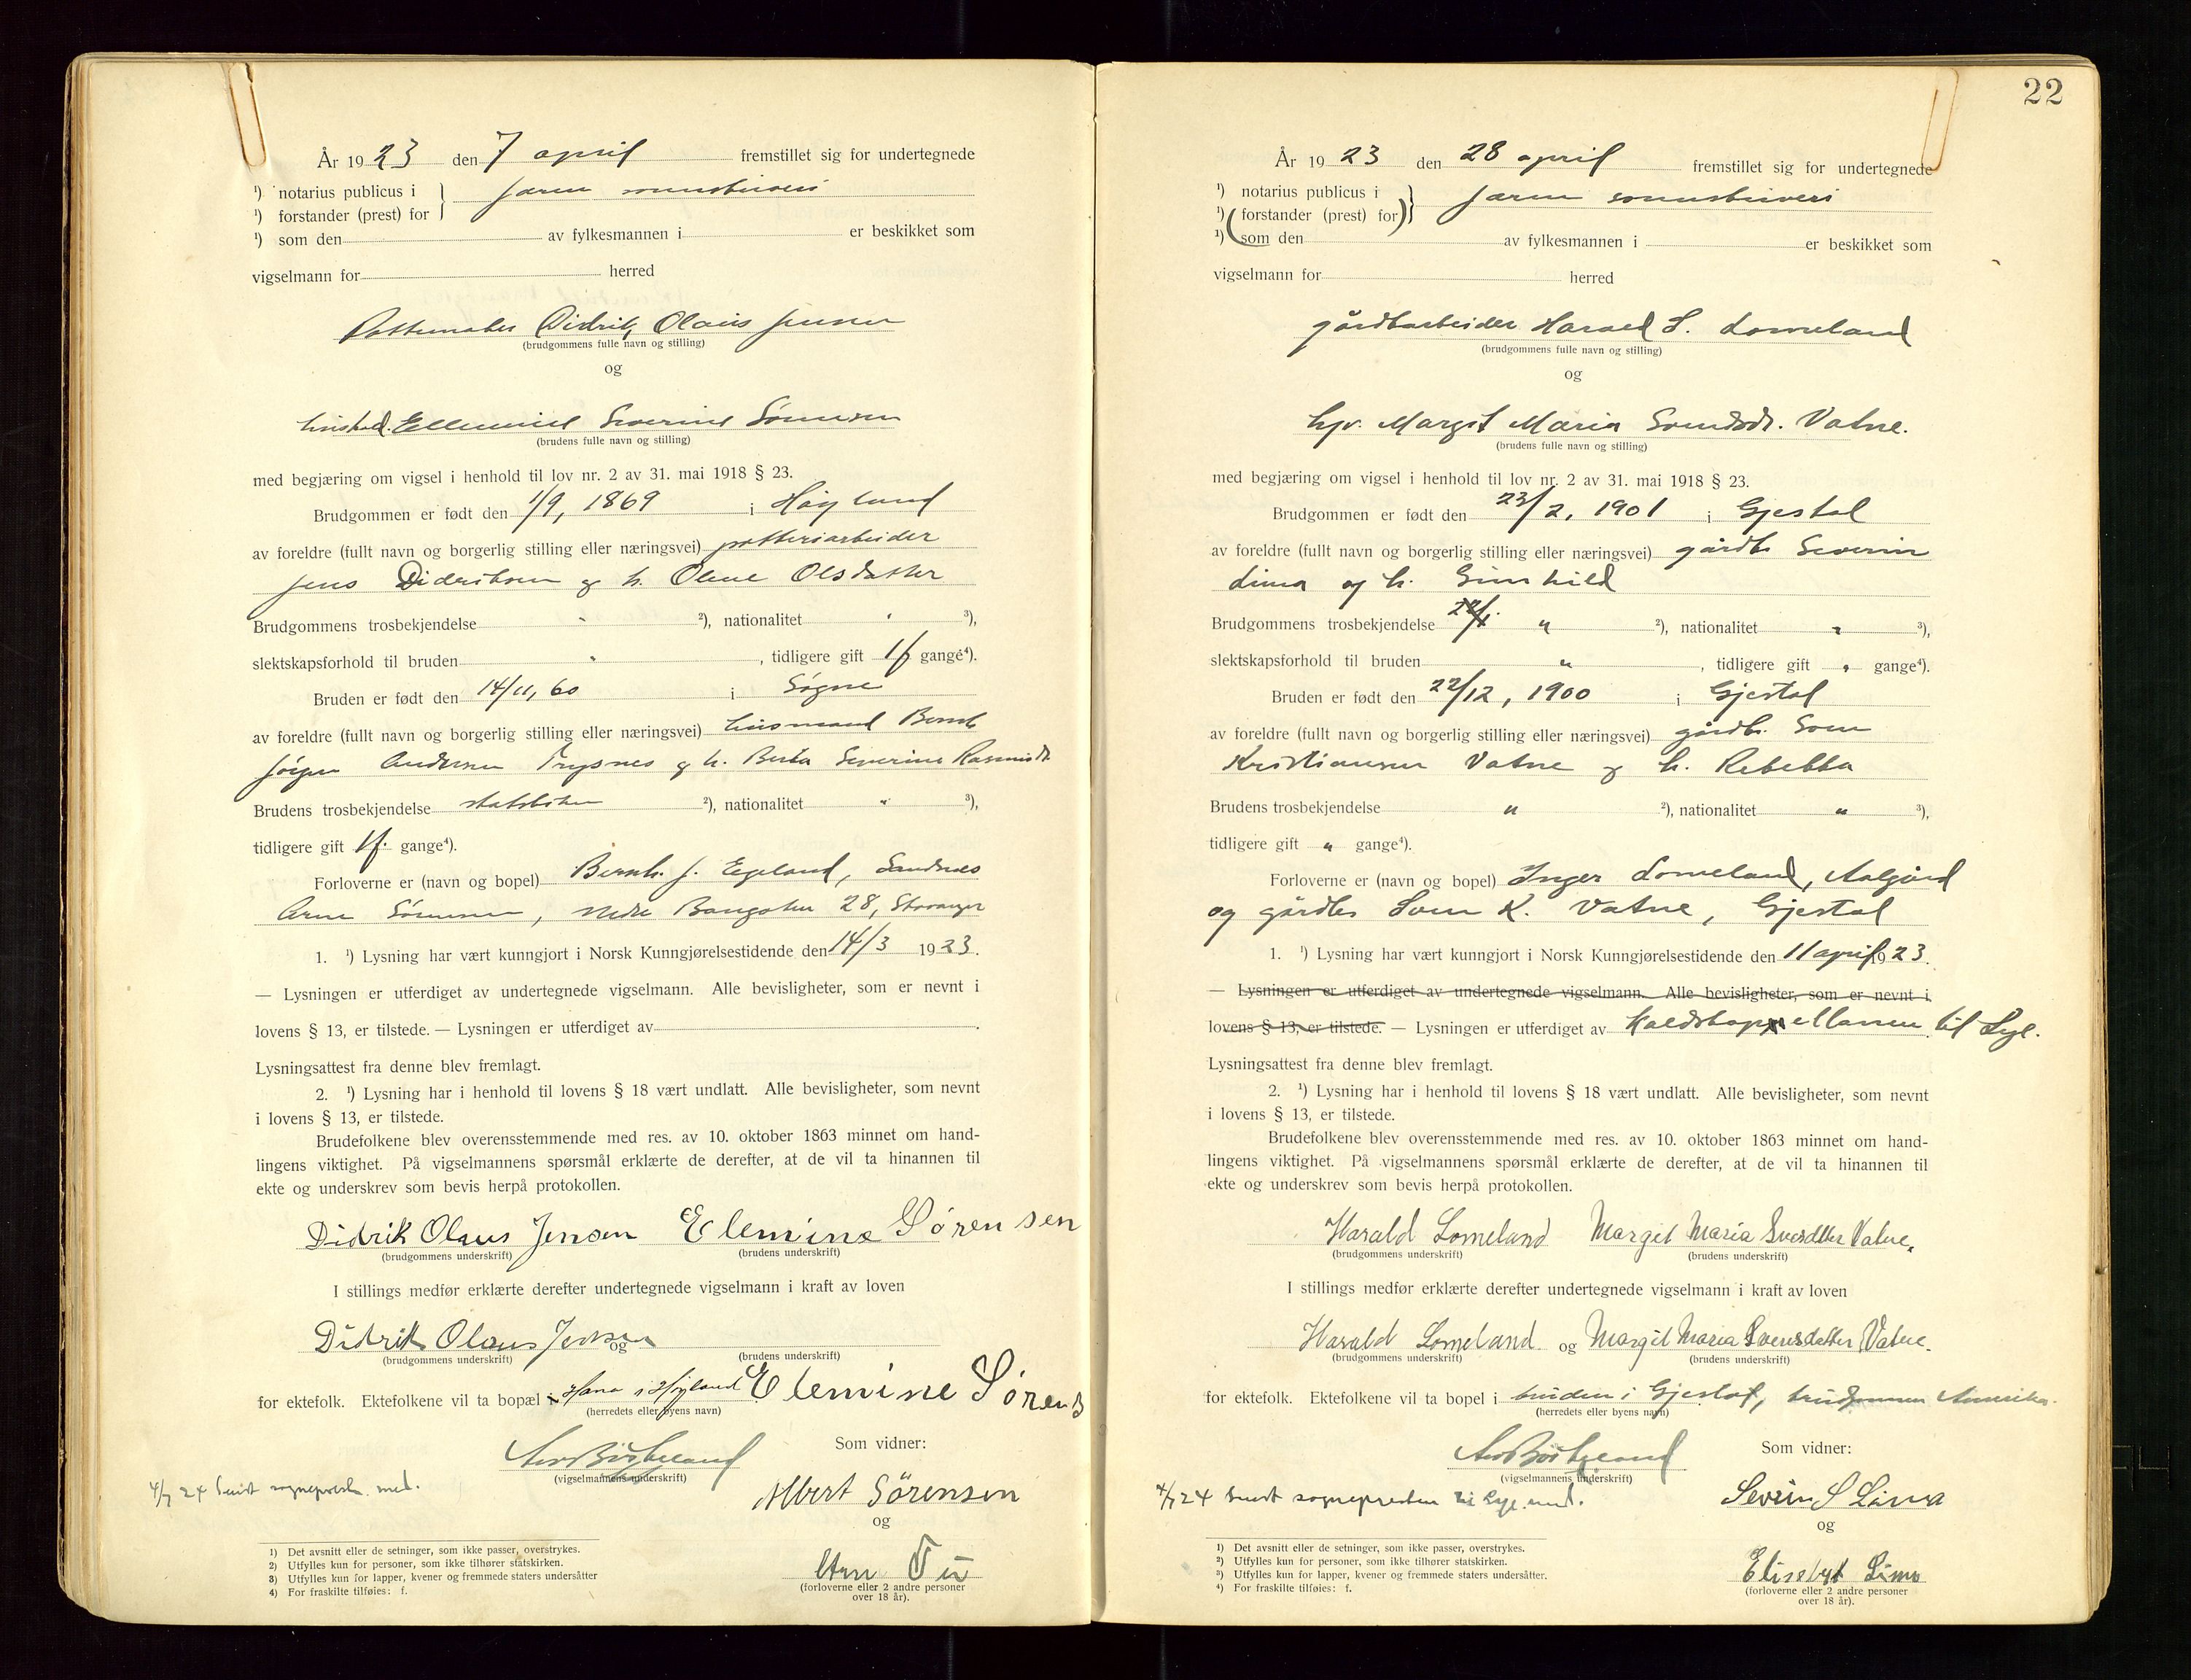 År 1923 den 7 april fremstillet sig for undertegnede
¹) notarius publicus i
¹) forstander (prest) for } Jæren sorenskriveri
¹) som den av fylkesmannen i er beskikket som
vigselmann for herred
Pottemaker Didrik Olaus Jensen
(brudgommens fulle navn og stilling)
og
hushold. Elleminel Severine Sørensen
(brudens fulle navn og stilling)
med begjæring om vigsel i henhold til lov nr. 2 av 31. mai 1918 § 23.
Brudgommen er født den 1/9, 1869 i Høyland
av foreldre (fullt navn og borgerlig stilling eller næringsvei) potteriarbeider
Jens Didriksen og h. Olene Olsdatter
Brudgommens trosbekjendelse " ²), nationalitet " ³),
slektskapsforhold til bruden " , tidligere gift 1f gange⁴).
Bruden er født den 14/11, 60 i Søgne
av foreldre (fullt navn og borgerlig stilling eller næringsvei) husmand Bernh
Jørgen Andersen Trysnes og h. Berta Severine Rasmusdt
Brudens trosbekjendelse statskirken ²), nationalitet " ³),
tidligere gift 1f. gange⁴).
Forloverne er (navn og bopel) Bernh. J. Egeland, Sandnes
Arne Sørensen, nedre Bangaten 28, Stavanger
1. ¹) Lysning har vært kunngjort i Norsk Kunngjørelsestidende den 14/3 1923.
— Lysningen er utferdiget av undertegnede vigselmann. Alle bevisligheter, som er nevnt i
lovens § 13, er tilstede. — Lysningen er utferdiget av
Lysningsattest fra denne blev fremlagt.
2. ¹) Lysning har i henhold til lovens § 18 vært undlatt. Alle bevisligheter, som nevnt
i lovens § 13, er tilstede.
Brudefolkene blev overensstemmende med res. av 10. oktober 1863 minnet om hand-
lingens viktighet. På vigselmannens spørsmål erklærte de derefter, at de vil ta hinannen til
ekte og underskrev som bevis herpå protokollen.
Didrik Olaus Jensen Elemine Sørensen
(brudgommens underskrift) (brudens underskrift)
I stillings medfør erklærte derefter undertegnede vigselmann i kraft av loven
Didrik Olaus Jensen og
(brudgommens underskrift) (brudens underskrift)
for ektefolk. Ektefolkene vil ta bopæl i Hana i Høyland Elemine Sørens
(herredets eller byens navn)
Som vidner:
(vigselmannens underskrift)
4/7 24 Sendt sogneprest. med.
Albert Sørensen
og
Arne Tu
(forloverne eller 2 andre personer
over 18 år).
1) Det avsnitt eller de setninger, som ikke passer, overstrykes.
2) Utfylles kun for personer, som ikke tilhører statskirken.
3) Utfylles kun for lapper, kvener og fremmede staters undersåtter
4) For fraskilte tilføies: f.
22
År 1923 den 28 april fremstillet sig for undertegnede
¹) notarius publicus i
¹) (forstander (prest) for) } Jæren sorenskriveri
¹) (som den av fylkesmannen i er beskikket som
vigselmann for herred
gårdbarbeider Harald S. Lomeland
(brudgommens fulle navn og stilling)
og
hjv. Margit Maria Svendsdt. Vatne.
(brudens fulle navn og stilling)
med begjæring om vigsel i henhold til lov nr. 2 av 31. mai 1918 § 23.
Brudgommen er født den 23/2, 1901 i Gjestal
av foreldre (fullt navn og borgerlig stilling eller næringsvei) gårdbr. Severin
Lima og h. Gunhild
Brudgommens trosbekjendelse " ²), nationalitet " ³),
slektskapsforhold til bruden " , tidligere gift " gange⁴).
Bruden er født den 22/12, 1900 i Gjestal
av foreldre (fullt navn og borgerlig stilling eller næringsvei) gårdbr. Sven
Kristiansen Vatne og h. Rebekka
Brudens trosbekjendelse " ²), nationalitet " ³),
tidligere gift " gange⁴).
Forloverne er (navn og bopel) Inger Lomeland, Aalgård
og gårdbr Sven K. Vatne, Gjestal
1. ¹) Lysning har vært kunngjort i Norsk Kunngjørelsestidende den 11 april 1923.
— Lysningen er utferdiget av undertegnede vigselmann. Alle bevisligheter, som er nevnt i
lovens § 13, er tilstede. — Lysningen er utferdiget av kaldskapellanen til Lye.
Lysningsattest fra denne blev fremlagt.
2. ¹) Lysning har i henhold til lovens § 18 vært undlatt. Alle bevisligheter, som nevnt
i lovens § 13, er tilstede.
Brudefolkene blev overensstemmende med res. av 10. oktober 1863 minnet om hand-
lingens viktighet. På vigselmannens spørsmål erklærte de derefter, at de vil ta hinannen til
ekte og underskrev som bevis herpå protokollen.
Harald Lomeland Margit Maria Svendtter Vatne.
(brudgommens underskrift) (brudens underskrift)
I stillings medfør erklærte derefter undertegnede vigselmann i kraft av loven
Harald Lomeland og Margit Maria Svensdatter Vatne.
(brudgommens underskrift) (brudens underskrift)
for ektefolk. Ektefolkene vil ta bopel i bruden i Gjestal, brudgommen Amerika.
(herredets eller byens navn)
Som vidner:
(vigselmannens underskrift)
4/7 24 Sendt sognepresten til Lye med.
Severin S Lima
og
Elisabet Lima
(forloverne eller 2 andre personer
over 18 år).
¹) Det avsnitt eller de setninger, som ikke passer, overstrykes.
²) Utfylles kun for personer, som ikke tilhører statskirken.
³) Utfylles kun for lapper, kvener og fremmede staters undersåtter.
⁴) For fraskilte tilføies: f.